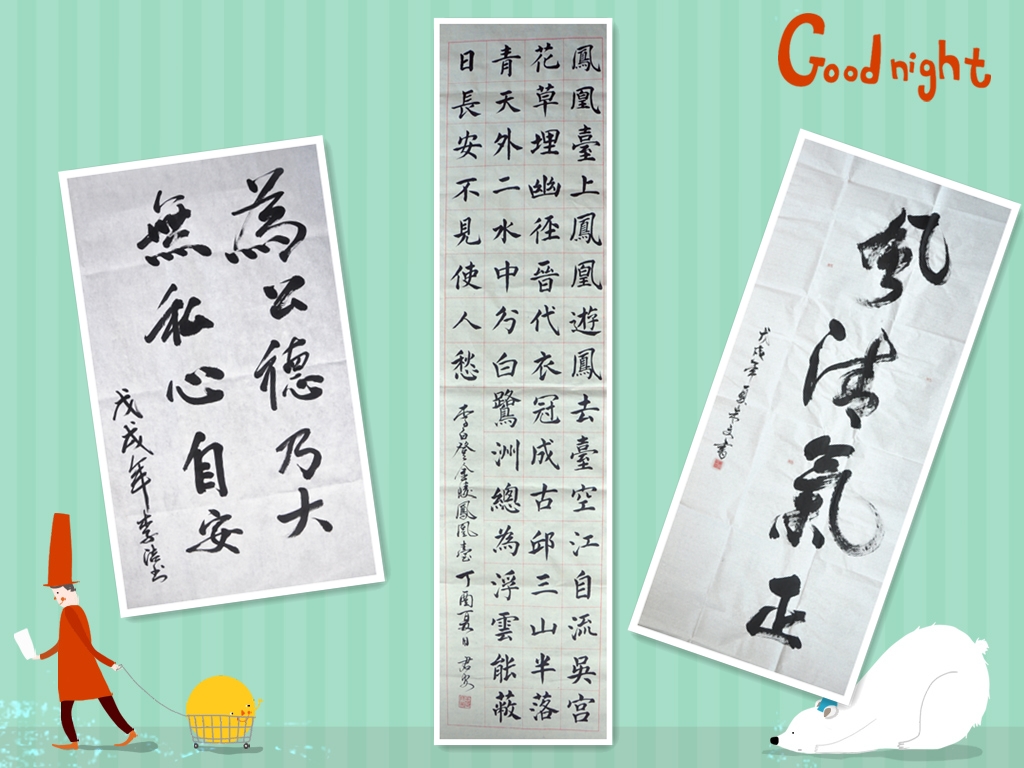 Good night
為公德乃大
無私心自安
戊戌年李浩书
鳳凰臺上鳳凰遊鳳去臺空江自流吳宮
花草埋幽徑晉代衣冠成古邱三山半落
青天外二水中分白鷺洲總為浮雲能蔽
日長安不見使人愁 李白登金陵鳳凰臺 丁酉夏日
風清氣正
戊戌年夏書